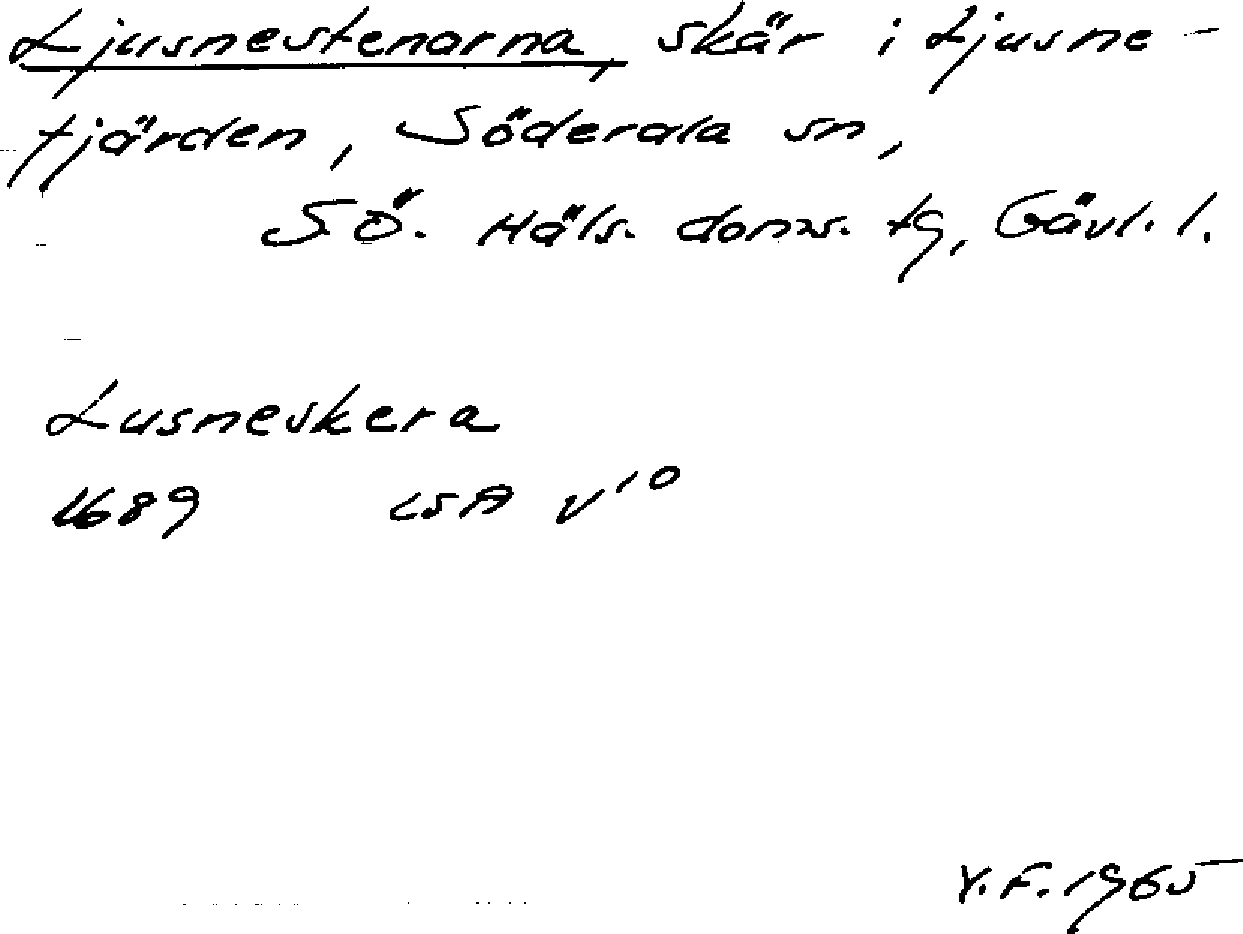 Ljusnestenarna, skär i Ljusne-
fjärden, Söderala sn,
Sö. Häls. doms. tg, Gävl. l.
Lusneskera
1689 LSA V 10
Y.F. 1965